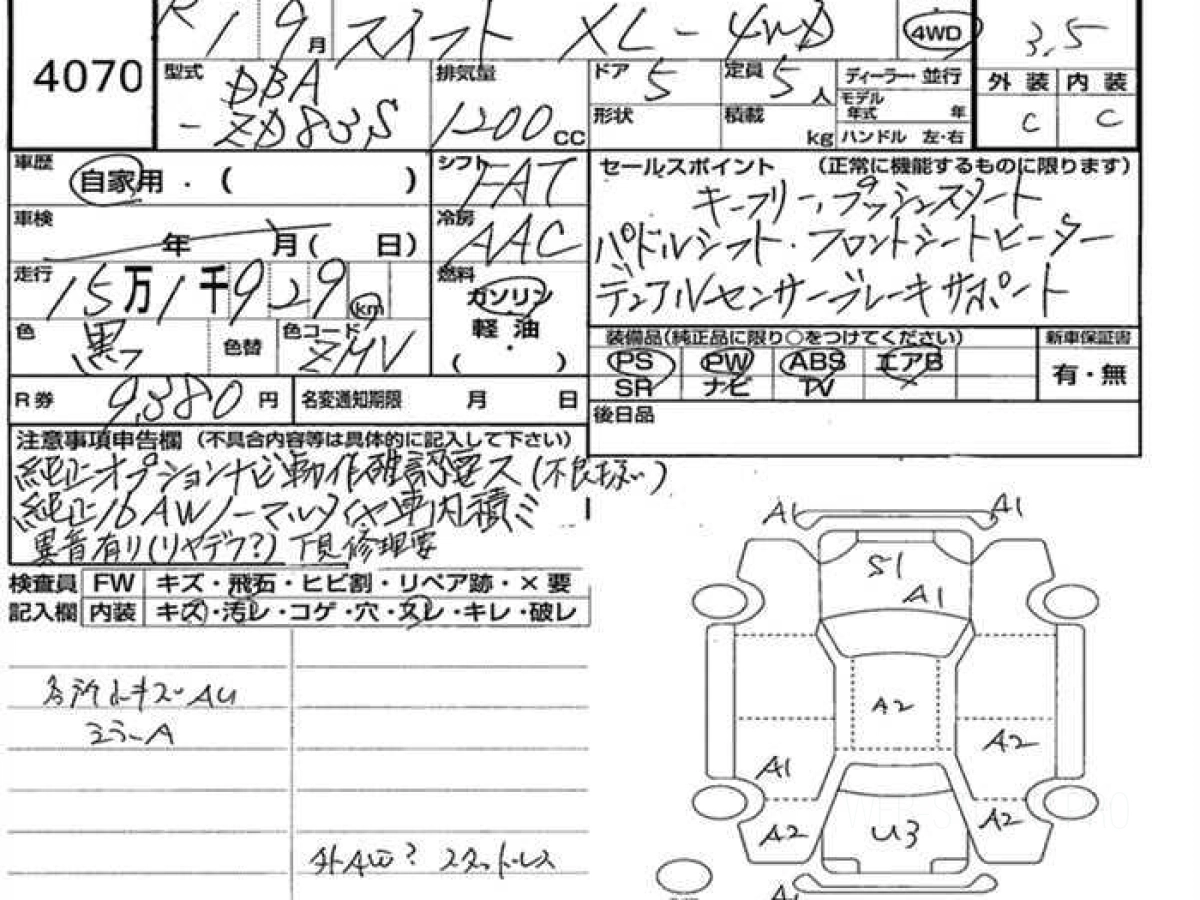 4070
R 1 9月 スイフト XL-4WD 4WD 3.5
型式 DBA -ZD83S
排気量 1200 CC
ドア 5 定員 5人
形状 積載 kg
ディーラー・並行
モデル年式 年
ハンドル 左・右
外装 内装
C C
車歴 自家用・( )
車検 年 月( 日)
走行 15万1千929 km
色 黒 色替 色コード ZMV
シフト FAT
冷房 AAC
燃料 ガソリン
軽油
( ・ )
セールスポイント (正常に機能するものに限ります)
キーフリー、プッシュスタート
パドルシフト・フロントシートヒーター
デュアルセンサーブレーキサポート
装備品(純正品に限り○をつけてください) 新車保証書
PS PW ABS エアB 有・無
SR ナビ TV
後日品
R券 9,380円 名変通知期限 月 日
注意事項申告欄 (不具合内容等は具体的に記入して下さい)
純正オプションナビ動作確認要ス(不良扱い)
純正16AWノーマルタイヤ車内積ミ
異音有リ(リヤデフ?) 下見修理要
検査員 FW キズ・飛石・ヒビ割・リペア跡・×要
記入欄 内装 キズ・汚レ・コゲ・穴・スレ・キレ・破レ
各所小キズ AU
ミラーA
外AW? スタッドレス
A1 A1
S1
A1
A2
A1 A2
A2 U3 A2
A1